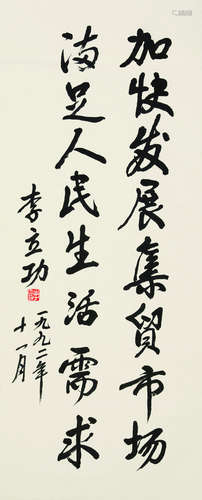 加快发展集贸市场
满足人民生活需求
李立功
一九九二年
十一月